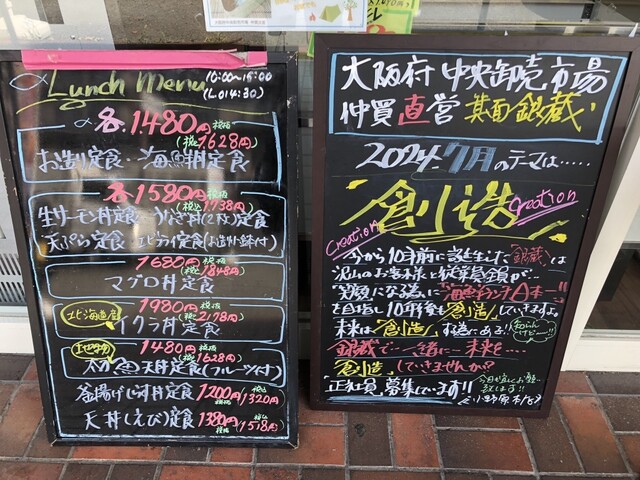 Lunch Menu
10:00〜15:00
(L.O14:30)
各.1480円 税抜
(税込1628円)
お造り定食・海鮮丼定食
各1580円 税抜
(税込1738円)
生サーモン丼定食・うなぎ丼(2枚)定食
天ぷら定食・エビフライ定食(お造り小鉢付)
1680円 税抜
(税込1848円)
マグロ丼定食
北海道産
1980円 税抜
(税込2178円)
イクラ丼定食
1480円 税抜
(税込1628円)
天丼定食(フルーツ付)
釜揚げしらす丼定食 1200円 税抜/1320円 税込
天丼(えび)定食 1380円 税抜/1518円 税込
大阪府中央卸売市場
仲買直営 箕面銀蔵
2024.7月のテーマは・・・・・
創造
Creation
Creation
今から10年前に誕生した「銀蔵」は
沢山のお客様と従業員全員が、
笑顔になる為に海鮮ランチ日本一!!
を目指し10年後も創造していきますよ。
未来は「創造」する為にある!
知らんけど…
銀蔵で一緒に未来を…
創造していきませんか?
「正社員」募集しています!!
今日も宜しくお願い致します!!